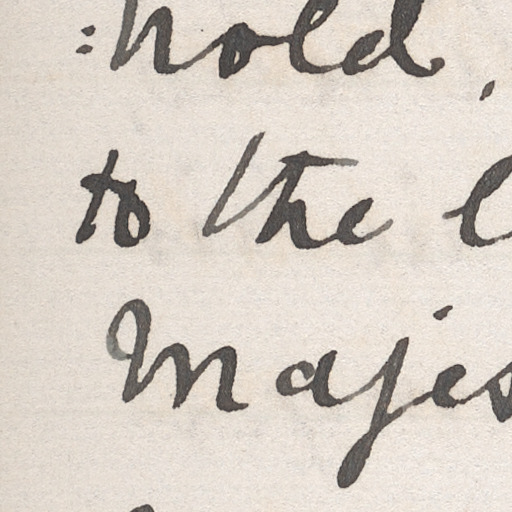 :hold,
to the
Majes